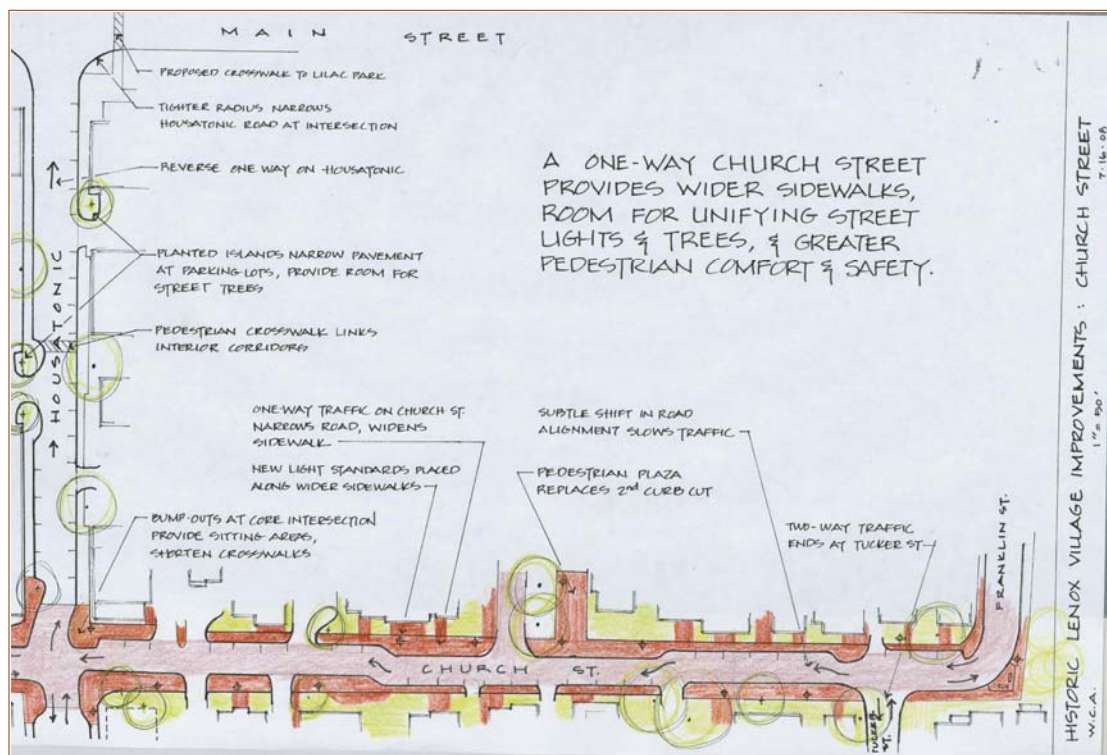 MAIN STREET
PROPOSED CROSSWALK TO LILAC PARK
TIGHTER RADIUS NARROWS
HOUSATONIC ROAD AT INTERSECTION
REVERSE ONE WAY ON HOUSATONIC
PLANTED ISLANDS NARROW PAVEMENT
AT PARKING LOTS, PROVIDE ROOM FOR
STREET TREES
PEDESTRIAN CROSSWALK LINKS
INTERIOR CORRIDORS
HOUSATONIC
A ONE-WAY CHURCH STREET
PROVIDES WIDER SIDEWALKS,
ROOM FOR UNIFYING STREET
LIGHTS & TREES, & GREATER
PEDESTRIAN COMFORT & SAFETY.
ONE-WAY TRAFFIC ON CHURCH ST.
NARROWS ROAD, WIDENS
SIDEWALK
NEW LIGHT STANDARDS PLACED
ALONG WIDER SIDEWALKS
BUMP-OUTS AT CORE INTERSECTION
PROVIDE SITTING AREAS,
SHORTEN CROSSWALKS
SUBTLE SHIFT IN ROAD
ALIGNMENT SLOWS TRAFFIC
PEDESTRIAN PLAZA
REPLACES 2nd CURB CUT
TWO-WAY TRAFFIC
ENDS AT TUCKER ST
FRANKLIN ST.
CHURCH ST.
TUCKER
ST.
HISTORIC LENOX VILLAGE IMPROVEMENTS : CHURCH STREET
W.C.A. 1"=50' 7.16.08